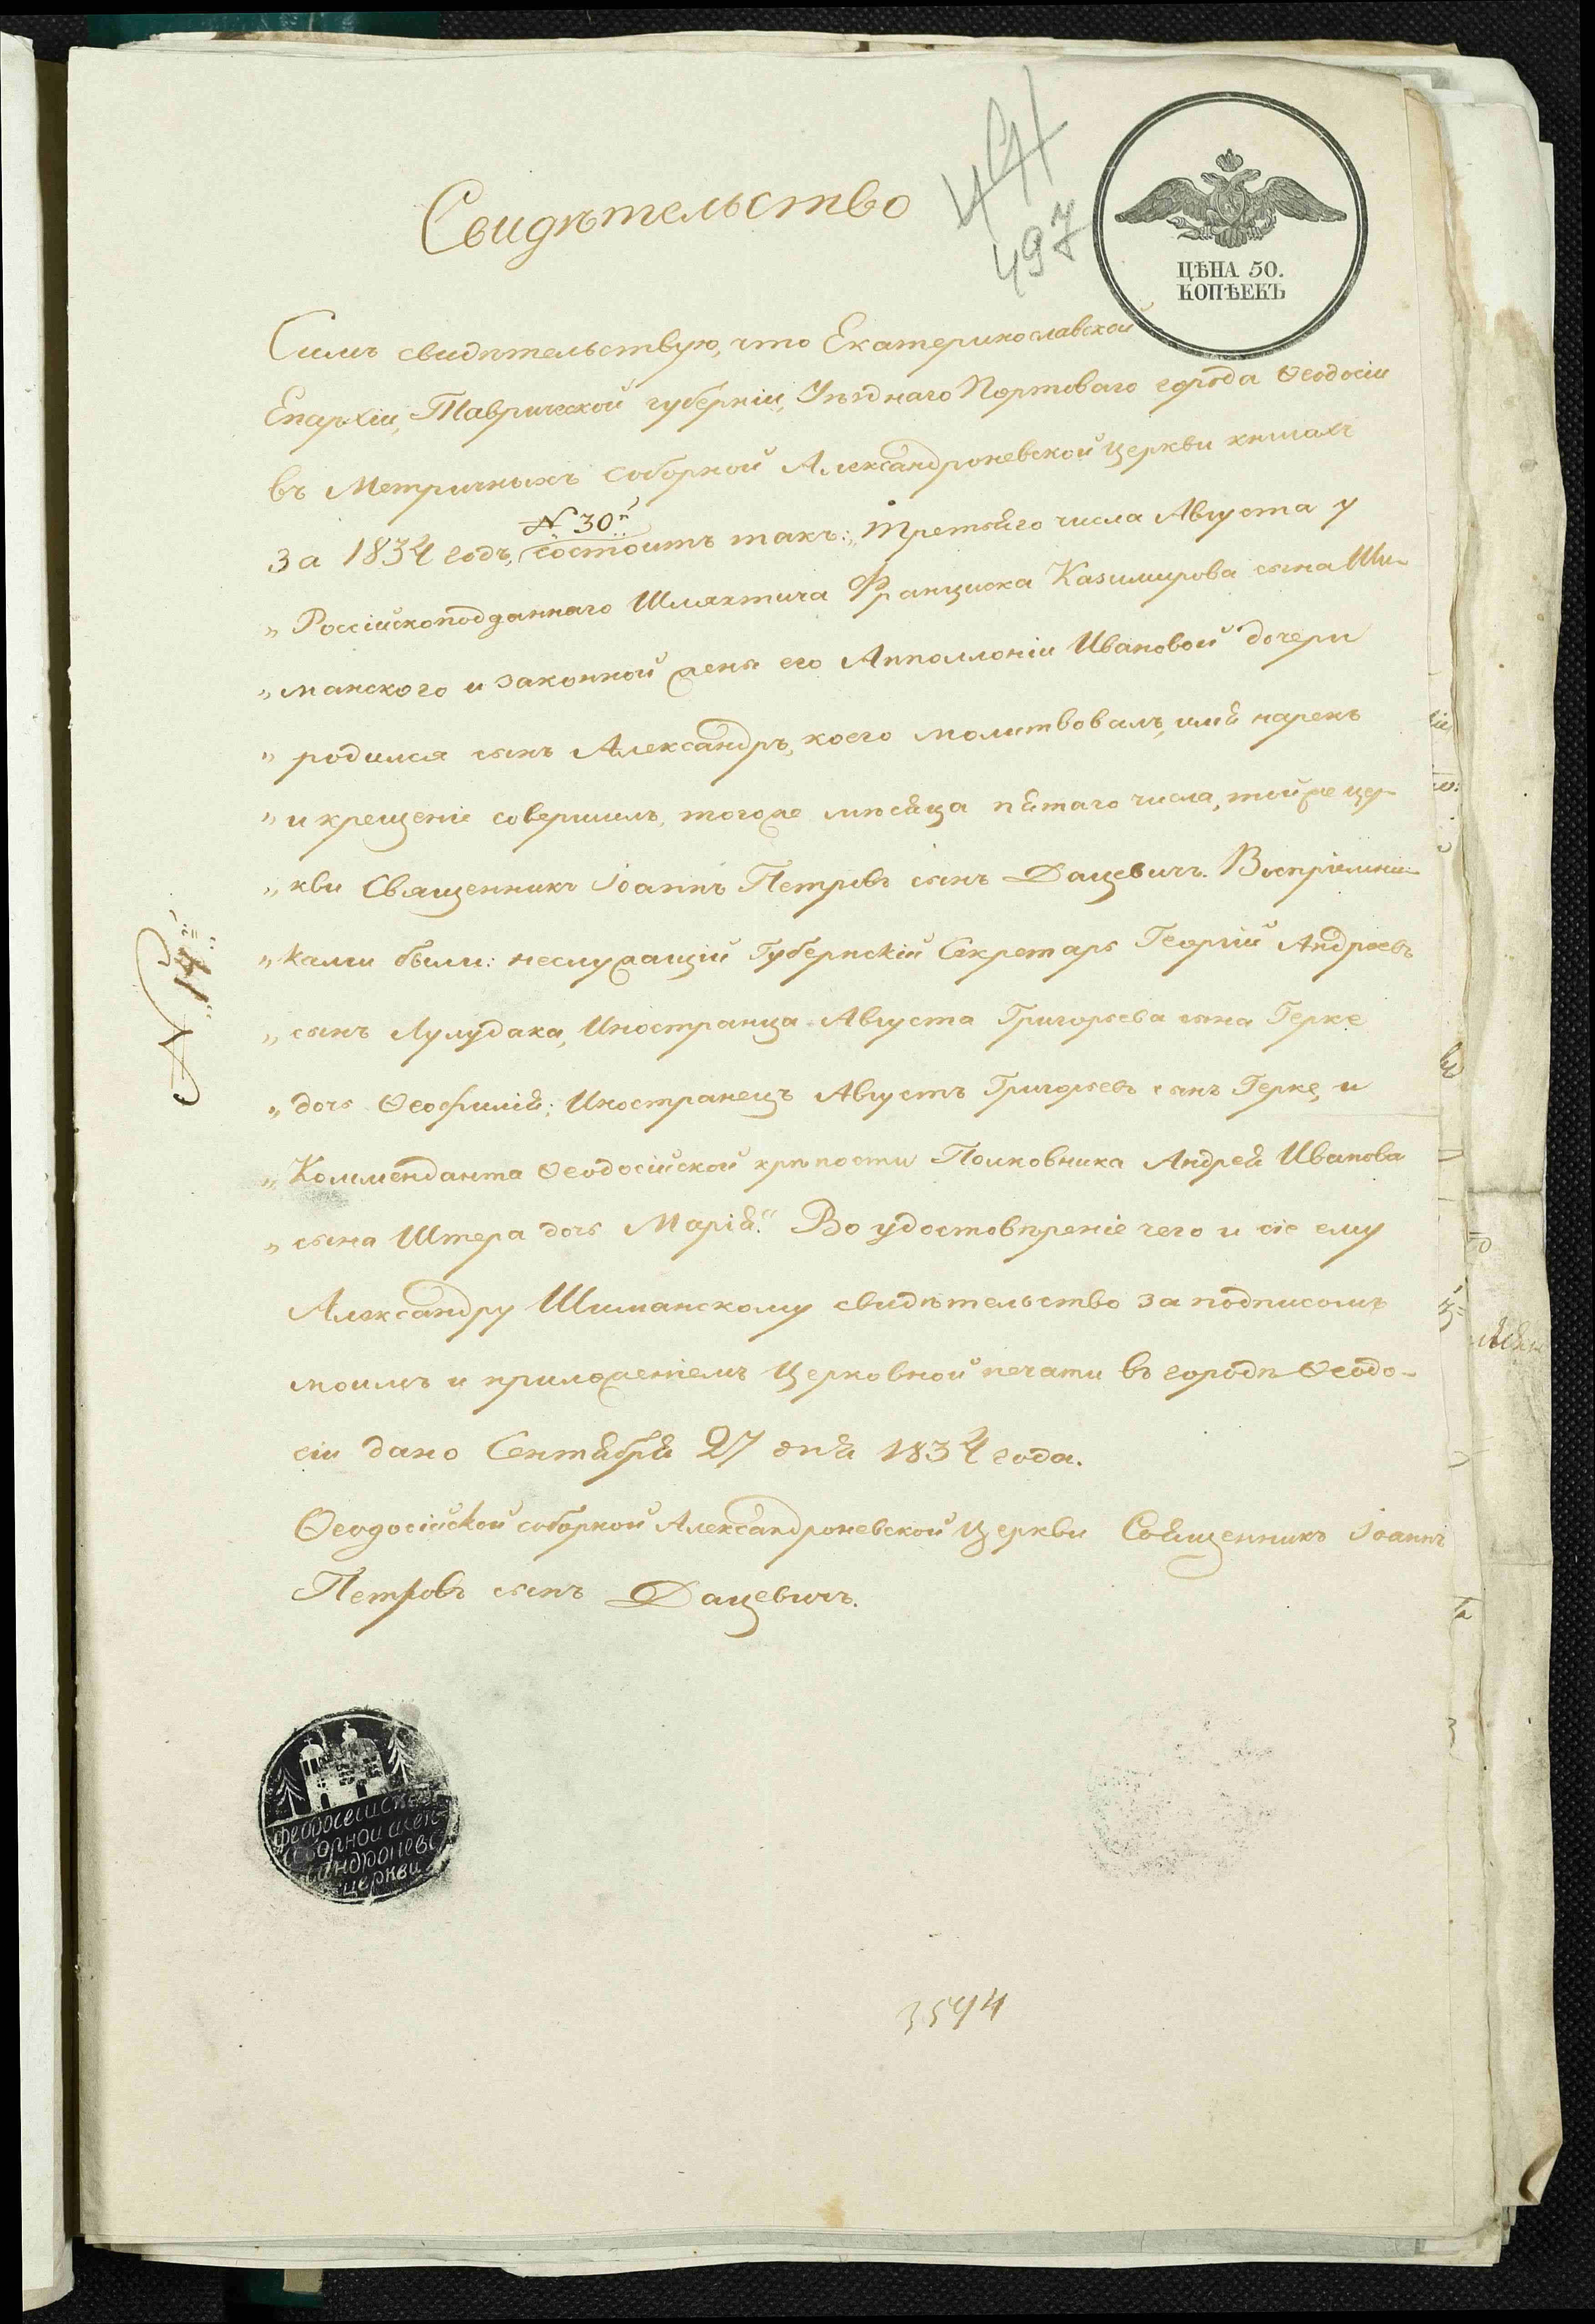 497
ЦѢНА 50.
КОПѢЕКЪ
Свидѣтельство
Симъ свидѣтельствую, что Екатеринославской
Епархіи, Таврической губерніи, Уѣзднаго Портоваго города Ѳеодосіи
въ Метричныхъ соборной Александроневской церкви книгахъ
№ 30й
за 1834 годъ, состоитъ такъ: „Третьяго числа Августа у
„Россійскоподданнаго Шляхтича Франциска Казимирова сына Ши-
„манского и законной жены его Апполлоніи Ивановой дочери
„родился сынъ Александръ, коего молитвовалъ, имя нарекъ
„и крещеніе совершилъ, тогоже мѣсяца пятаго числа, тойже цер-
„кви Священникъ Іоаннъ Петровъ сынъ Дацевичъ. Воспріемни-
„ками были: неслужащій Губернскій Секретарь Георгій Андреевъ
„сынъ Лулудаки, Иностранца Августа Григорьева сына Герке
„дочь Ѳеофилія; Иностранецъ Августъ Григорьевъ сынъ Герке, и
„Комменданта Ѳеодосійской крѣпости Полковника Андрея Иванова
„сына Штера дочь Марія." Во удостовѣреніе чего и сіе ему
Александру Шиманскому свидѣтельство за подписомъ
моимъ и приложеніемъ Церковной печати въ городѣ Ѳеодо-
сіи дано Сентября 27 дня 1834 года.
Ѳеодосійской соборной Александроневской Церкви Священникъ Іоаннъ
Петровъ сынъ Дацевичъ.
N 14
церкви
3544